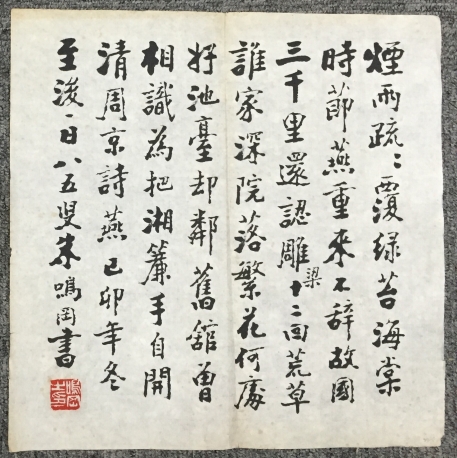 煙雨疏〻覆緑苔海棠
時節燕重來不辭故國
三千里還認雕梁十二回荒草
誰家深院落繁花何處
好池臺却鄰舊館曽
相識為把湘簾手自開
清周京詩燕己卯年冬
至後一日八五叟朱鳴岡書